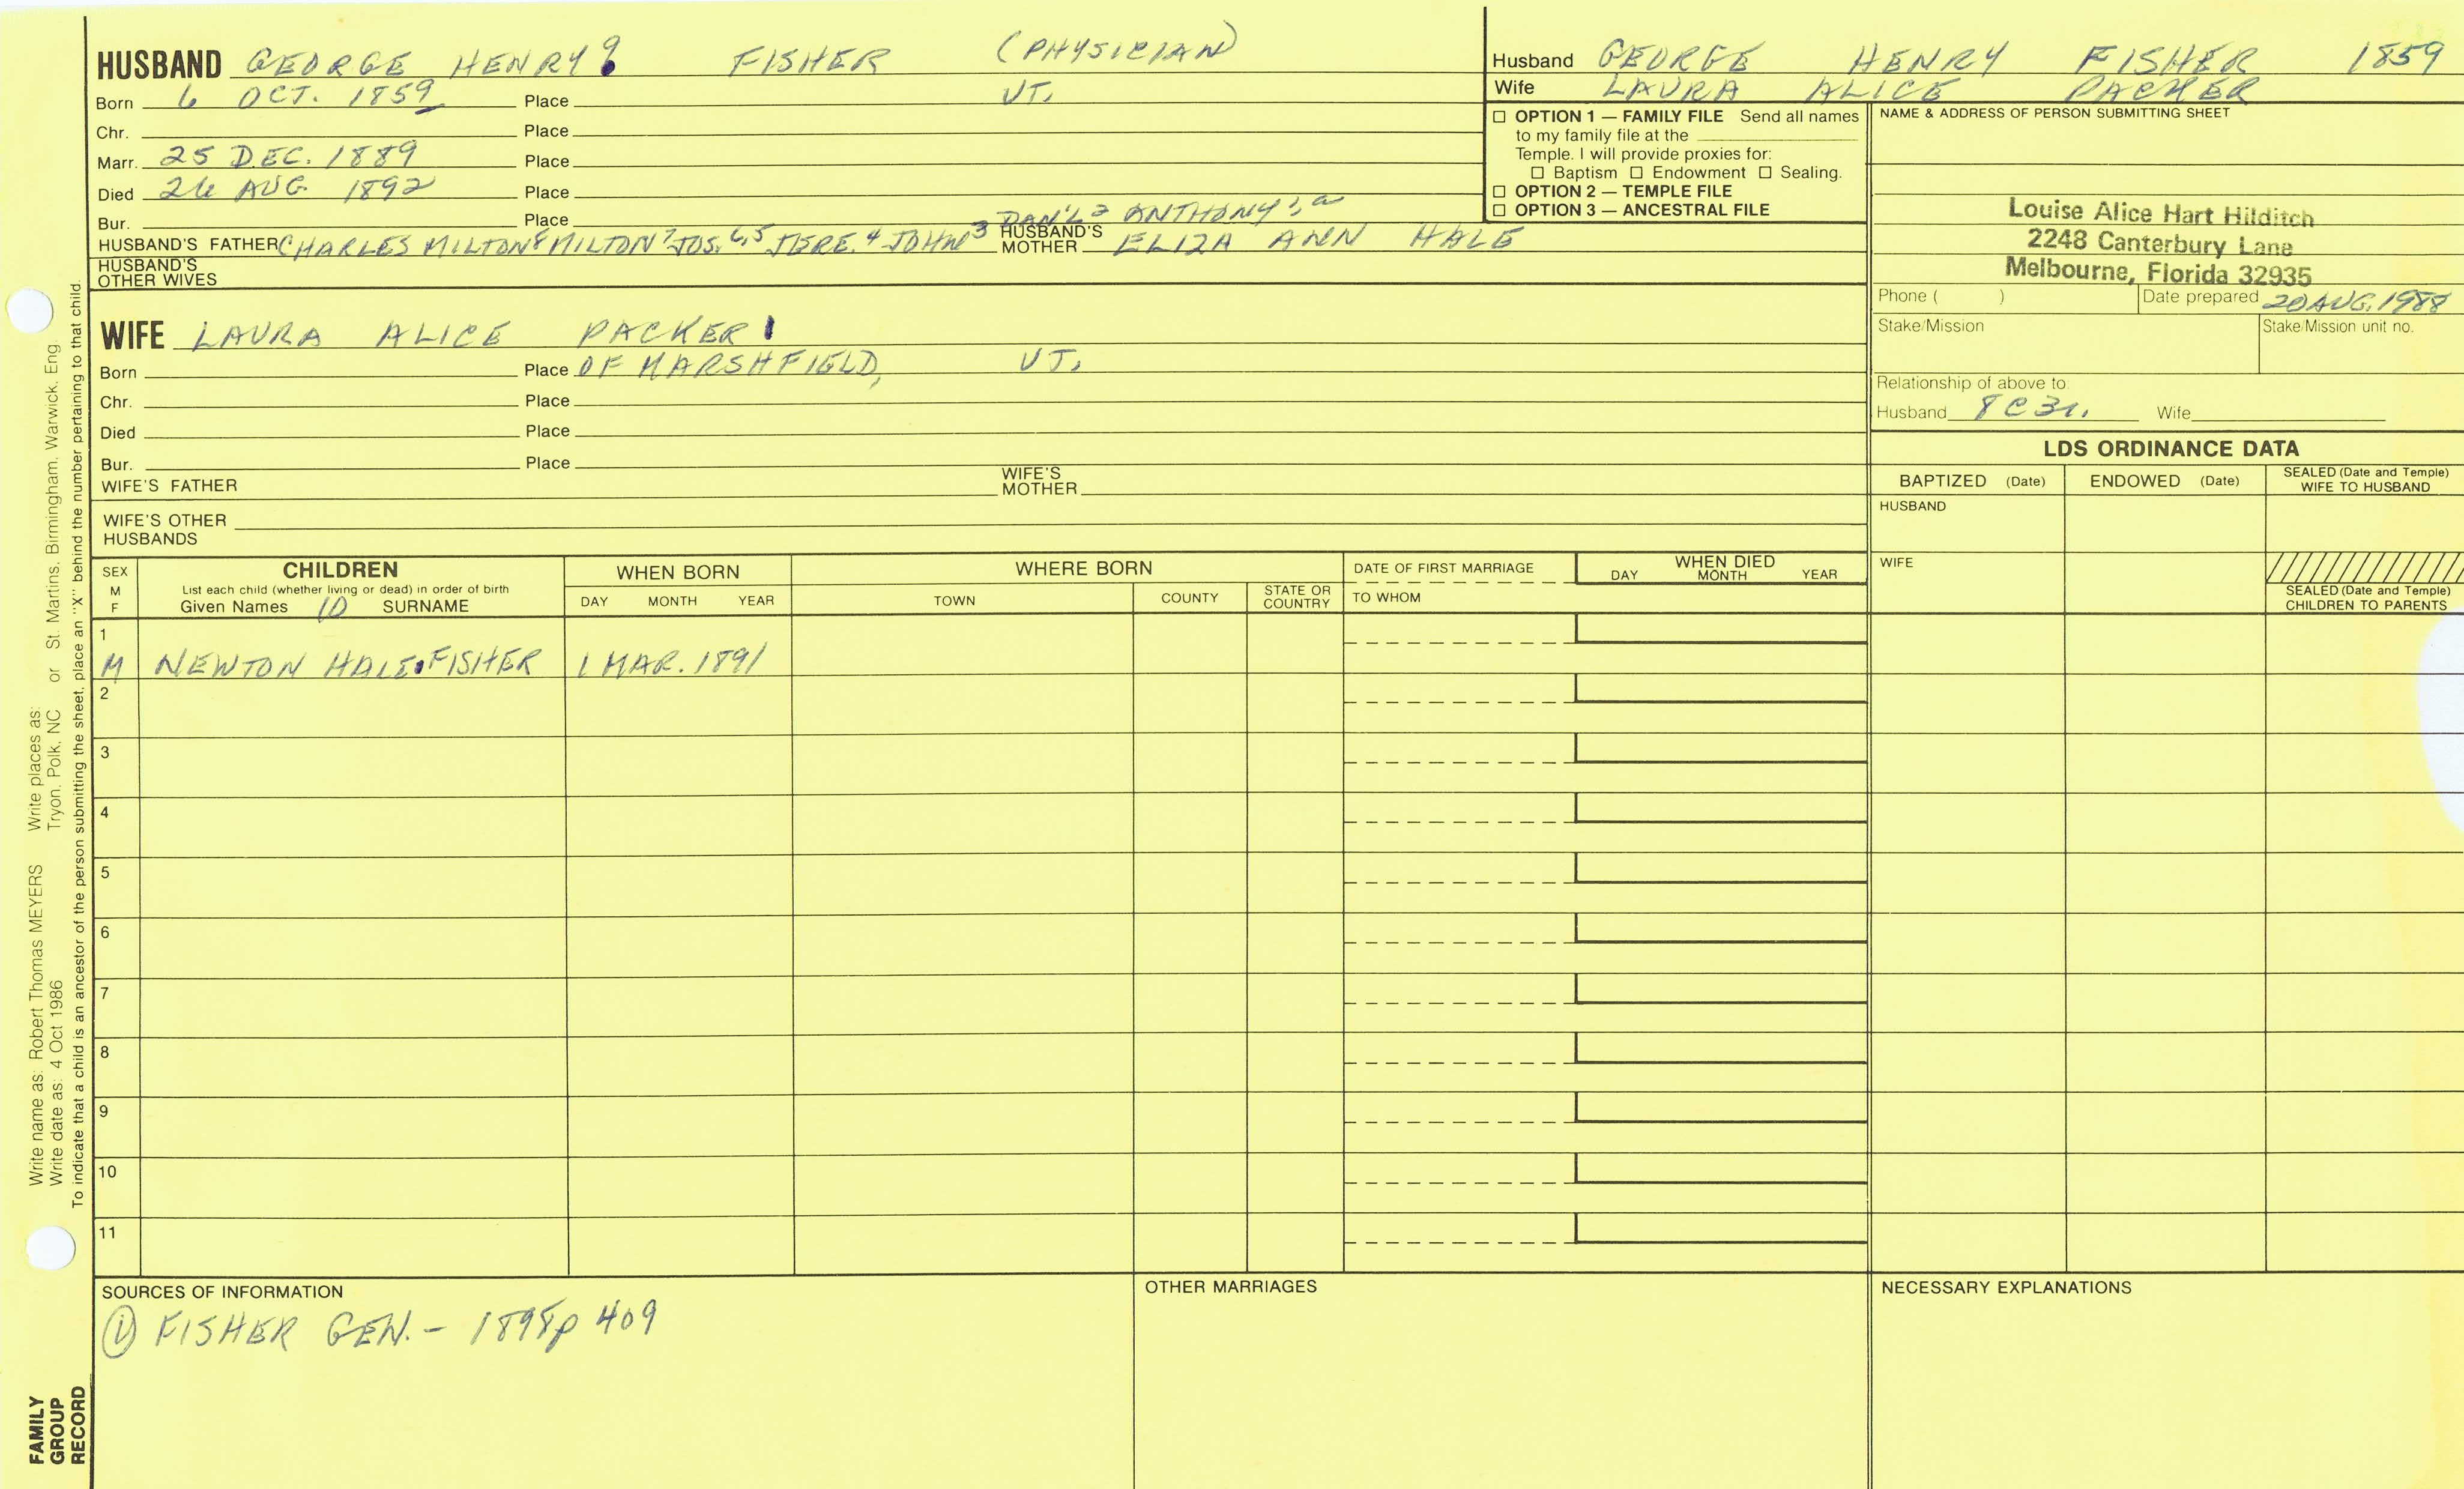 HUSBAND GEORGE HENRY9 FISHER (PHYSICIAN)
Born 6 OCT. 1859 Place VT.
Chr. Place
Marr. 25 DEC. 1889 Place
Died 26 AUG. 1892 Place
Bur. Place
DAN'L2 ANTHONY1,a
HUSBAND'S FATHER CHARLES MILTON8 MILTON7 JOS.6,5 JERE.4 JOHN3 HUSBAND'S MOTHER ELIZA ANN HALE
HUSBAND'S
OTHER WIVES
WIFE LAURA ALICE PACKER
Born Place OF MARSHFIELD, VT.
Chr. Place
Died Place
Bur. Place
WIFE'S FATHER WIFE'S MOTHER
WIFE'S OTHER
HUSBANDS
Husband GEORGE HENRY FISHER 1859
Wife LAURA ALICE PACKER
☐ OPTION 1 — FAMILY FILE Send all names
to my family file at the
Temple. I will provide proxies for:
☐ Baptism ☐ Endowment ☐ Sealing.
☐ OPTION 2 — TEMPLE FILE
☐ OPTION 3 — ANCESTRAL FILE
NAME & ADDRESS OF PERSON SUBMITTING SHEET
Louise Alice Hart Hilditch
2248 Canterbury Lane
Melbourne, Florida 32935
Phone ( ) Date prepared 20 AUG. 1988
Stake/Mission Stake/Mission unit no.
Relationship of above to:
Husband 8C3r. Wife
LDS ORDINANCE DATA
BAPTIZED (Date) ENDOWED (Date) SEALED (Date and Temple) WIFE TO HUSBAND
HUSBAND
WIFE
SEALED (Date and Temple)
CHILDREN TO PARENTS
SEX M F
CHILDREN
List each child (whether living or dead) in order of birth
Given Names 10 SURNAME
WHEN BORN
DAY MONTH YEAR
WHERE BORN
TOWN COUNTY STATE OR COUNTRY
DATE OF FIRST MARRIAGE
TO WHOM
WHEN DIED
DAY MONTH YEAR
1
M NEWTON HALE FISHER 1 MAR. 1891
2
3
4
5
6
7
8
9
10
11
SOURCES OF INFORMATION
① FISHER GEN. - 1898 p 409
OTHER MARRIAGES
NECESSARY EXPLANATIONS
Write name as: Robert Thomas MEYERS Write places as:
Write date as: 4 Oct 1986 Tryon, Polk, NC or St. Martins, Birmingham, Warwick, Eng.
To indicate that a child is an ancestor of the person submitting the sheet, place an "X" behind the number pertaining to that child.
FAMILY
GROUP
RECORD